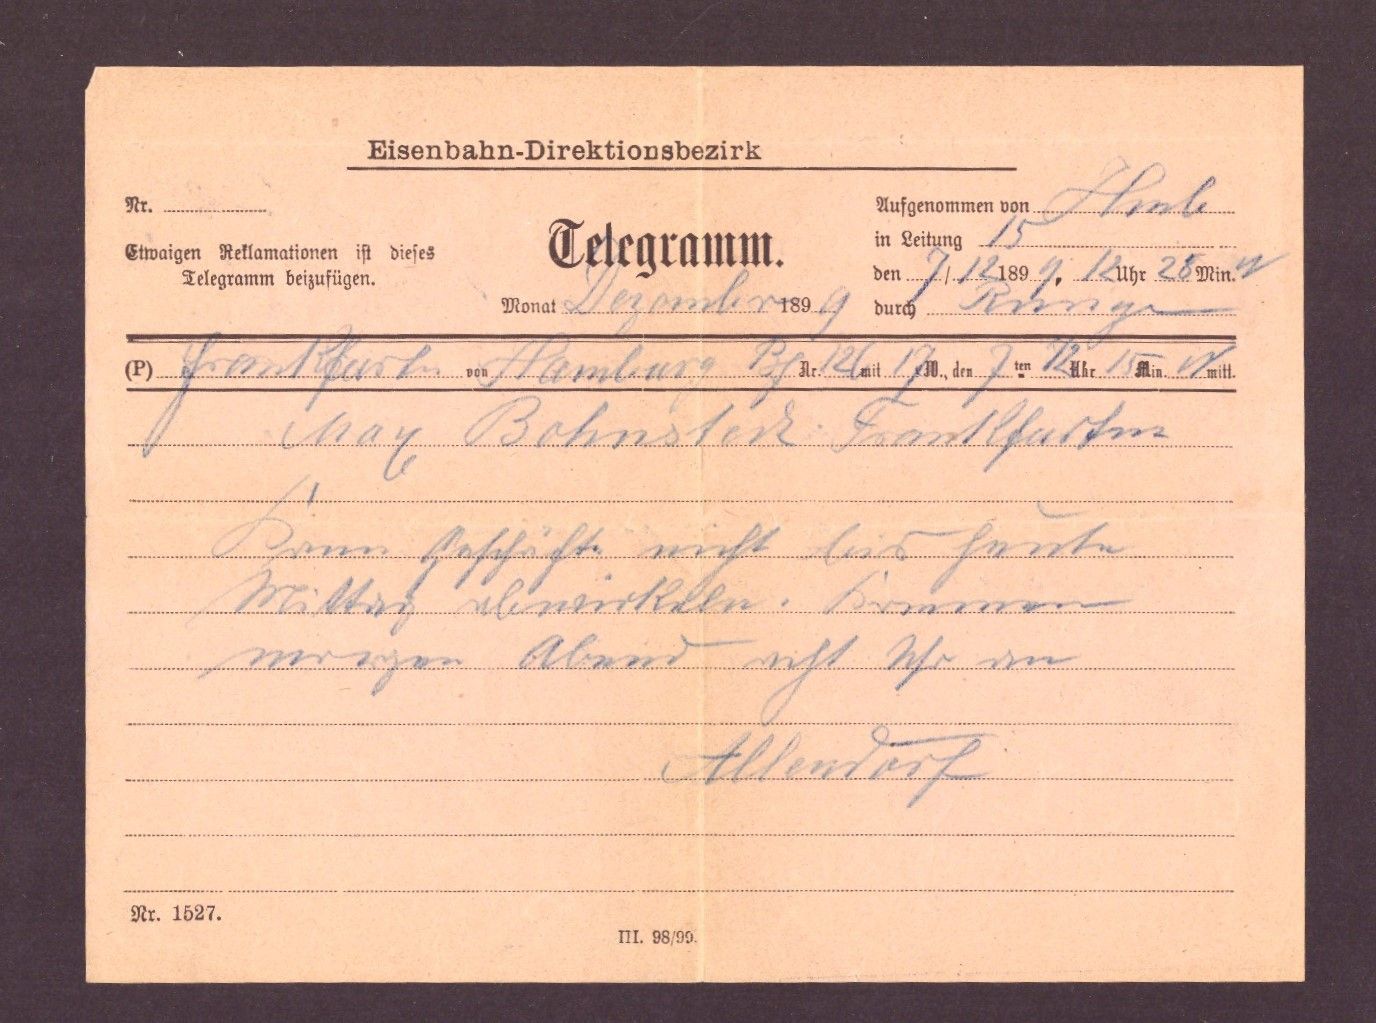 Eisenbahn-Direktionsbezirk
Nr.
Etwaigen Reklamationen ist dieses
Telegramm beizufügen.
Telegramm.
Monat Dezember 1899
Aufgenommen von Hmb
in Leitung 15
den 7/12 1899. 12 Uhr 25 Min. N
durch Runge
(P) Frankfurtm von Hamburg Bf Nr. 126 mit 17 W., den 7ten 12 Uhr 15 Min. N mitt.
Max Bohnstedt Frankfurtm
Kann Geschäfte nicht bis heute
Mittag abwickeln. Kommen
morgen Abend acht Uhr an
Allendorf
Nr. 1527.
III. 98/99.